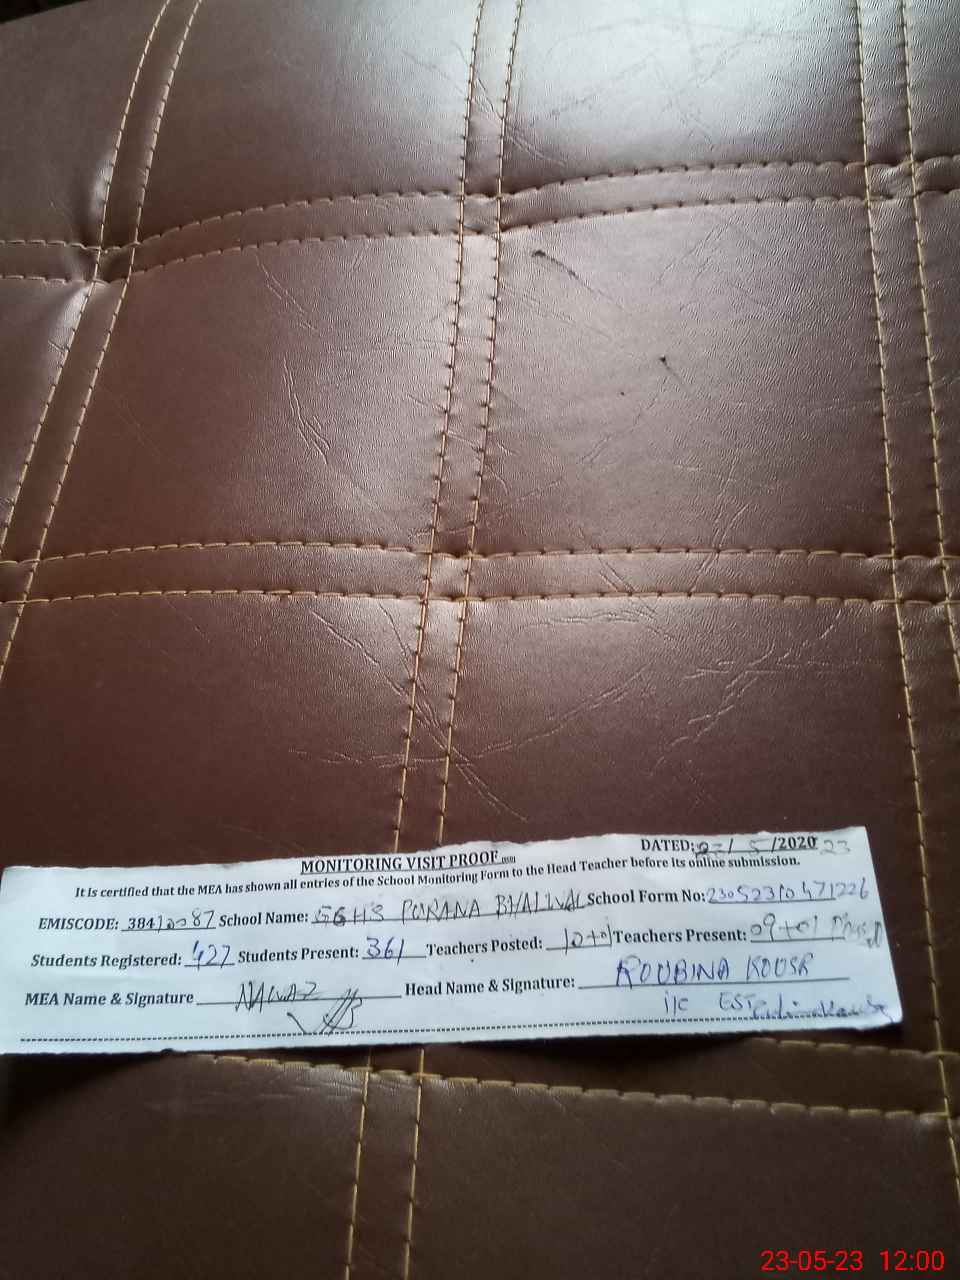 MONITORING VISIT PROOF
DATED: /5/2020 23
It is certified that the MEA has shown all entries of the School Monitoring Form to the Head Teacher before its online submission.
EMISCODE: 38410087 School Name: GGHS PURANA BHALWAL School Form No: 23052310471226
Students Registered: 427 Students Present: 361 Teachers Posted: 12+01 Teachers Present: 09+01
MEA Name & Signature NAWAZ Head Name & Signature: ROUBINA KOUSR
i/c EST
23-05-23 12:00